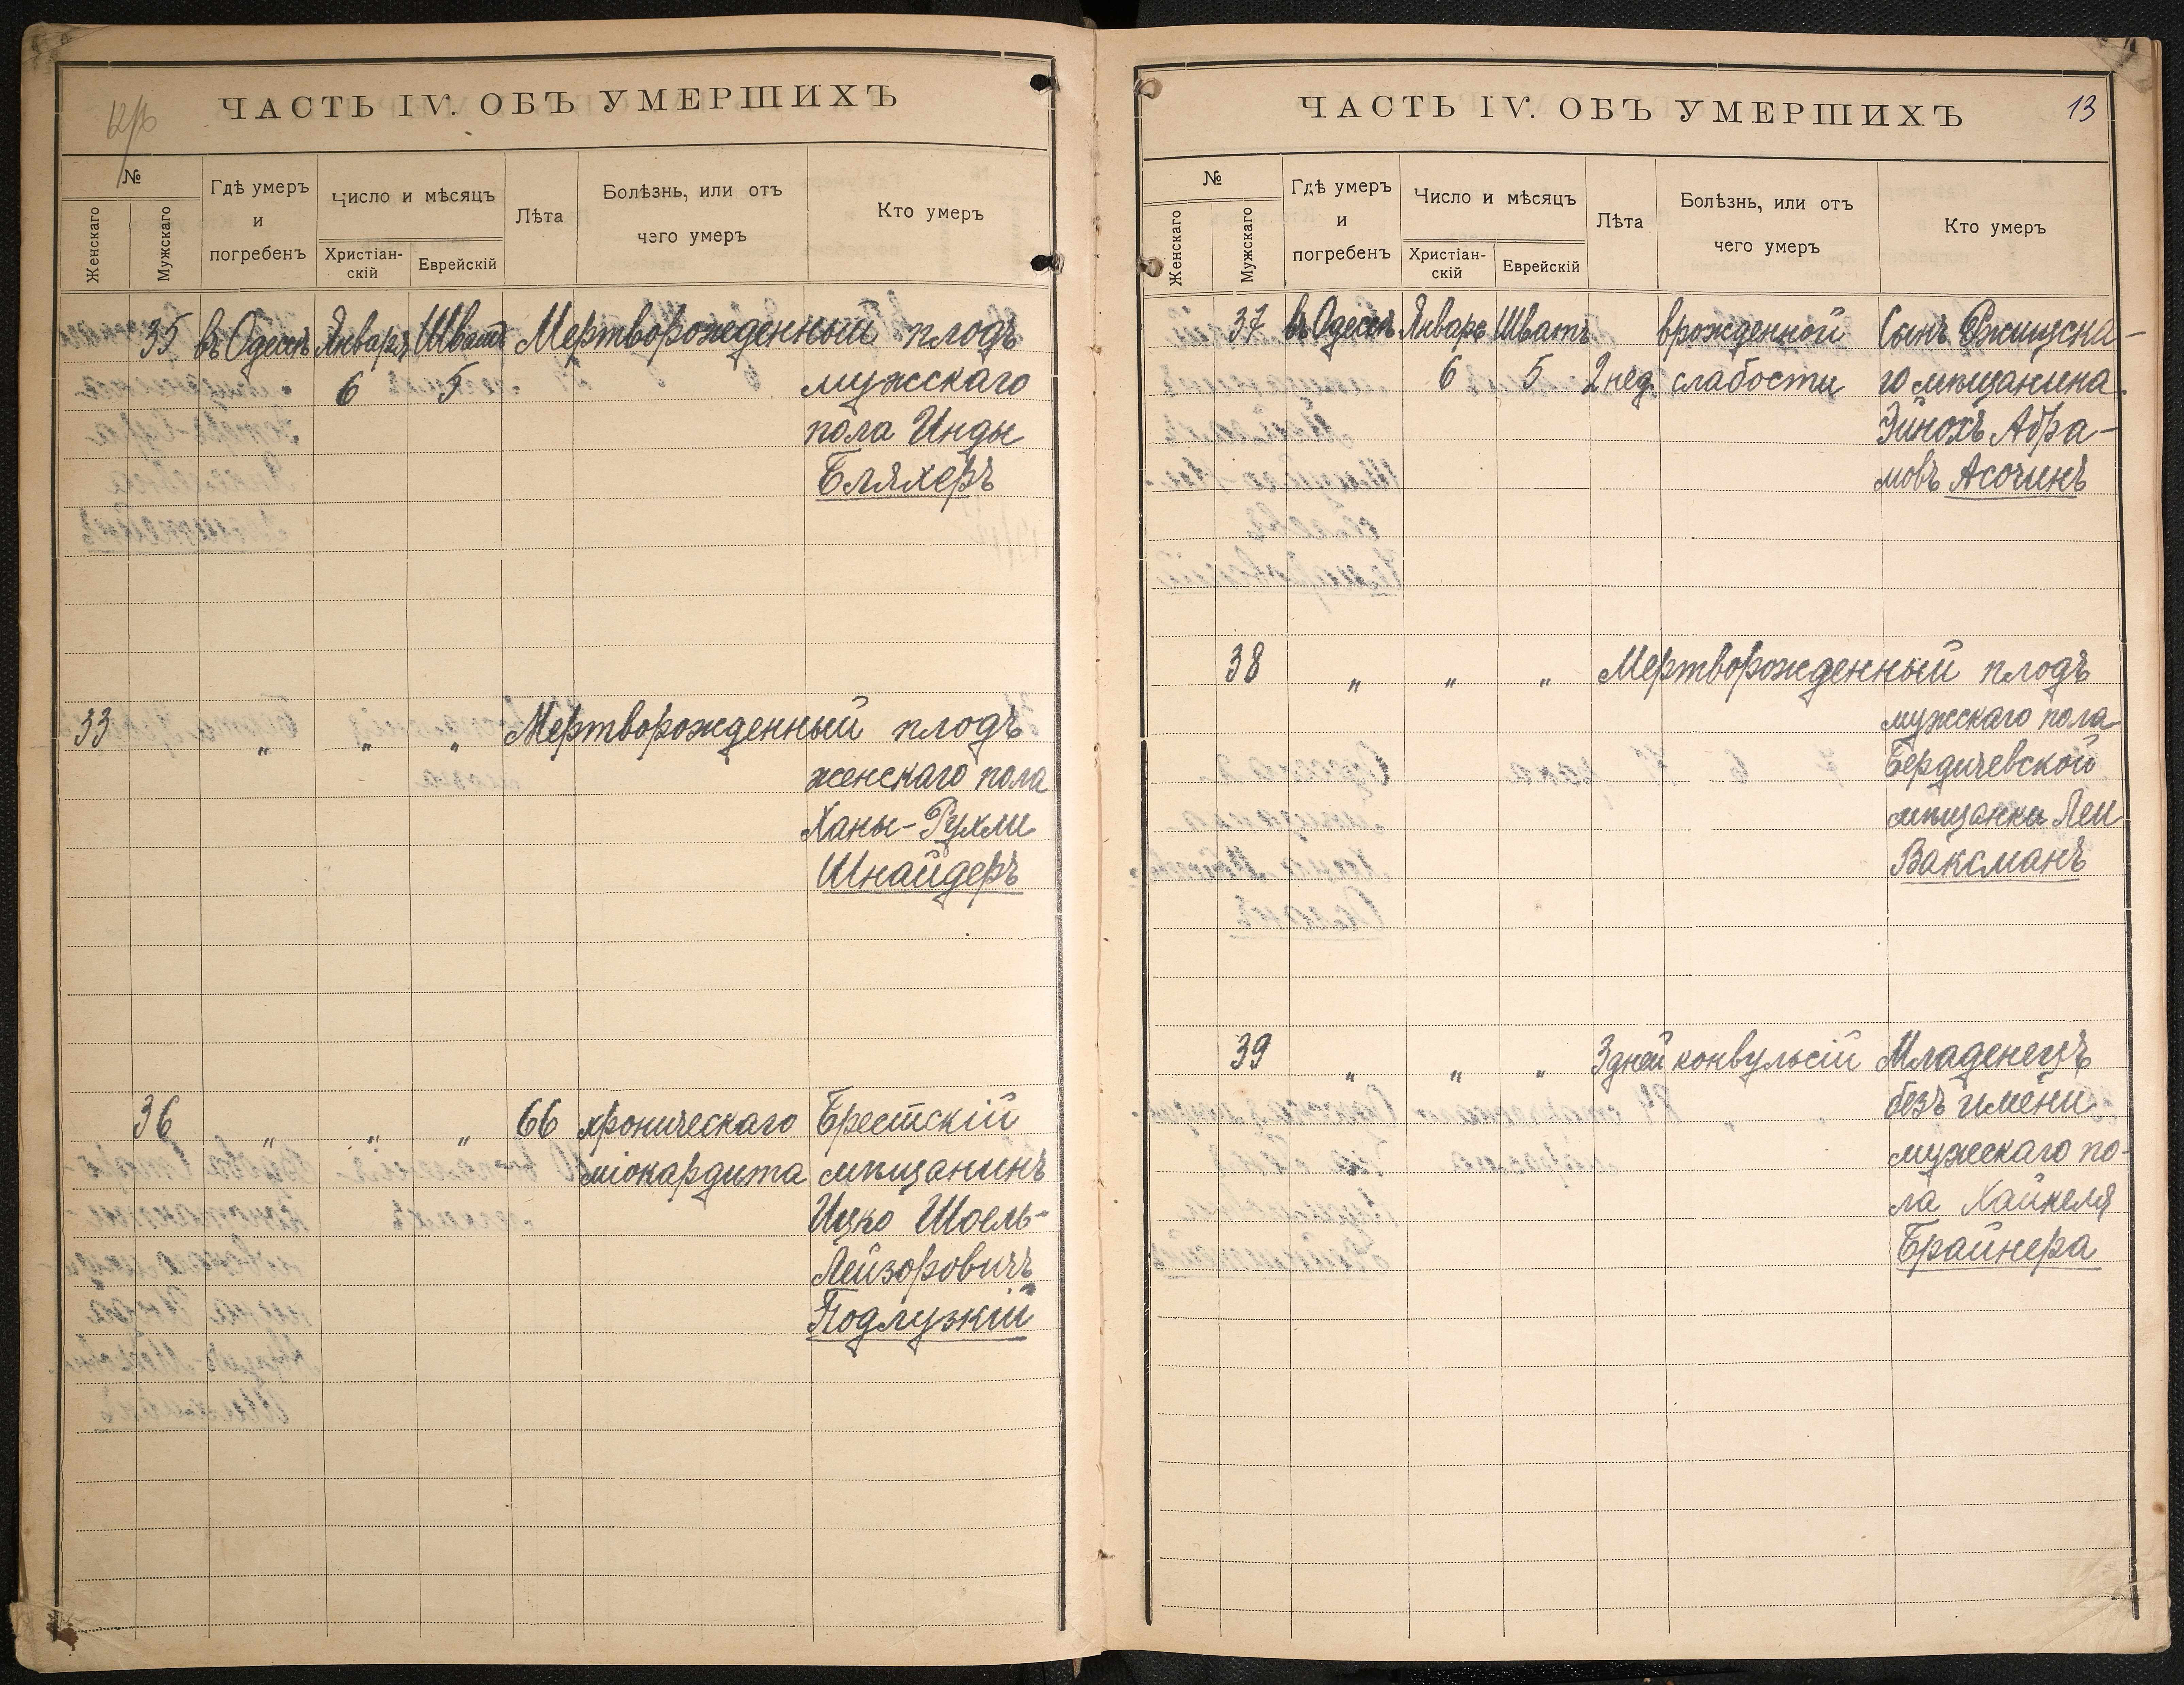 ЧАСТЬ IV. ОБЪ УМЕРШИХЪ
№
Женскаго
Мужскаго
Гдѣ умеръ
и
погребенъ
Число и мѣсяцъ
Христіан-
скій
Еврейскій
Лѣта
Болѣзнь, или отъ
чего умеръ
Кто умеръ
35 въ Одессѣ Январь Шватъ Мертворожденный плодъ
6 5 мужскаго
пола Инды
Бляхеръ
33 " " " Мертворожденный плодъ
женскаго пола
Ханы-Рухли
Шнайдеръ
36 " " " 66 хроническаго Брестскій
міокардита мѣщанинъ
Ицко Шоель-
Лейзоровичъ
Подлузкій
ЧАСТЬ IV. ОБЪ УМЕРШИХЪ
13
№
Женскаго
Мужскаго
Гдѣ умеръ
и
погребенъ
Число и мѣсяцъ
Христіан-
скій
Еврейскій
Лѣта
Болѣзнь, или отъ
чего умеръ
Кто умеръ
37 въ Одессѣ Январь Шватъ врожденной Сынъ Ржищска-
6 5 2 нед. слабости го мѣщанина
Эйнохъ Абра-
мовъ Асочинъ
38 " " " Мертворожденный плодъ
мужскаго пола
Бердичевской
мѣщанки Леи
Ваксманъ
39 " " " 3 дней конвульсій Младенецъ
безъ имени
мужескаго по-
ла Хайкеля
Брайнера